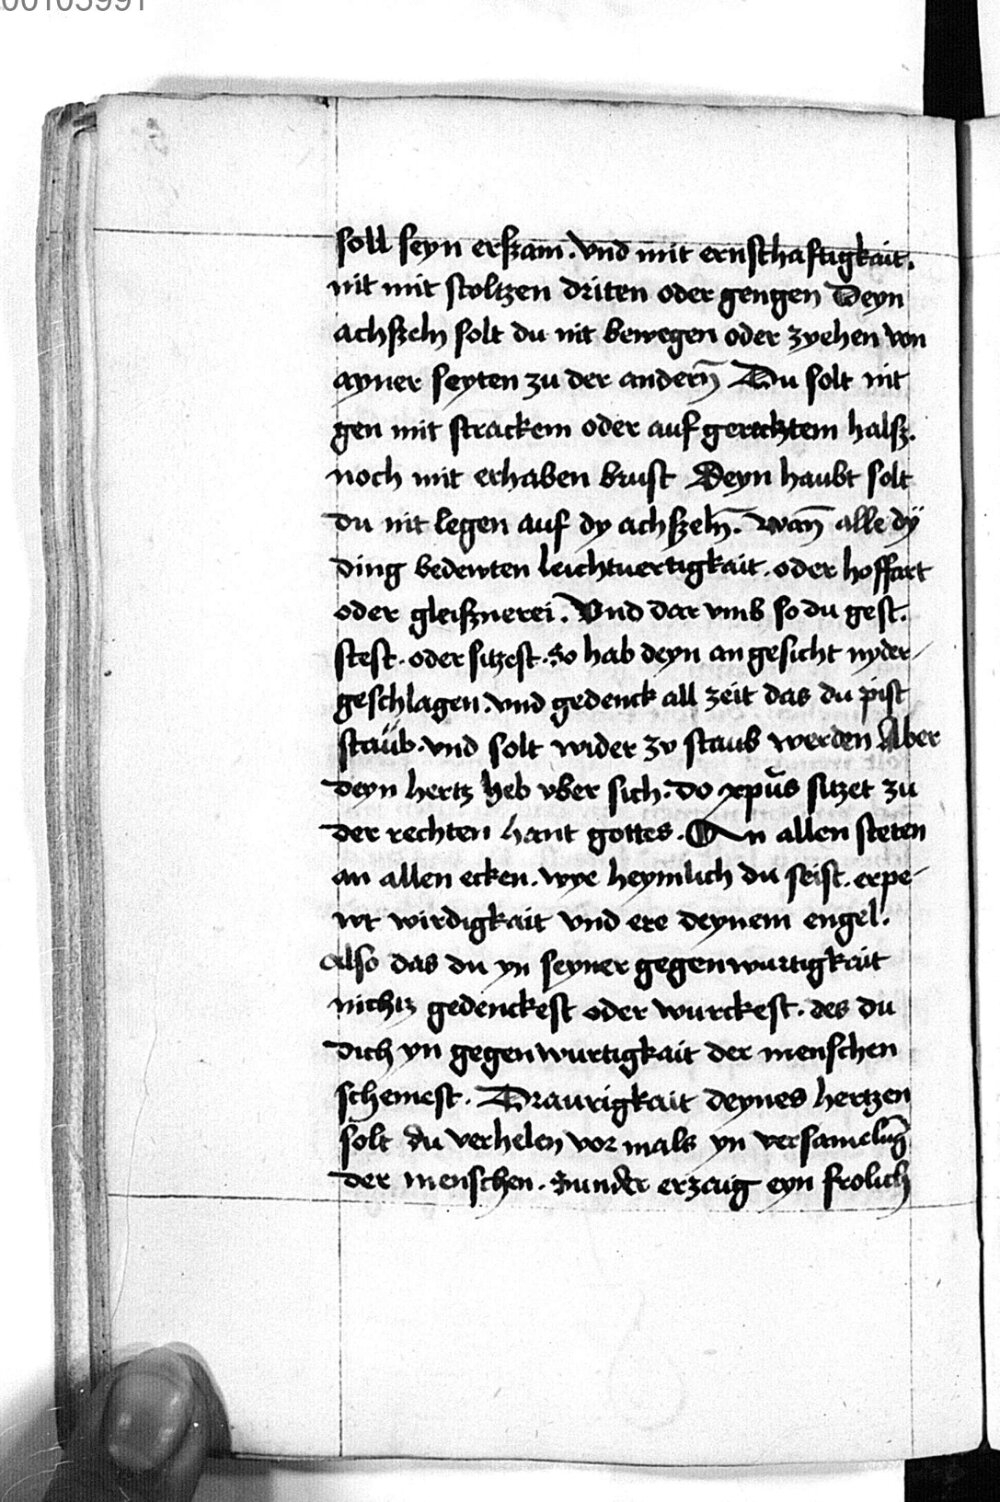 00103991
soll seyn erszam. vnd mit ernsthaftigkait.
nit mit stoltzen driten oder gengen Deyn
achszeln solt du nit bewegen oder zyehen von
ayner seyten zu der andern̄ Du solt nit
gen mit strackem oder auf gerechtem halsz.
noch mit erhaben brust Deyn haubt solt
du nit legen auf dy achszeln̄. Wan̄ alle dÿ
ding bedewten leichtuertigkait. oder hoffart
oder gleisznerei. Vnd dar vmb so du gest.
stest. oder sitzest. So hab deyn an gesicht nyder
geschlagen. vnd gedenck all zeit das du pist
staub. vnd solt wider zv staub werden Aber
deyn hertz heb vber sich. do xp̄us sitzet zu
der rechten hant gottes. An allen steten
an allen ecken. wye heymlich du seist. erpe-
wt wirdigkait vnd ere deynem engel.
Also das du yn seyner gegenwurtigkait
nichtz gedenckest oder wurckest. des du
dich yn gegenwurtigkait der menschen
schemest. Draurigkait deynes hertzen
solt du verhelen vor mals yn versamelūg
der menschen. Sunder erzaig eyn frolich